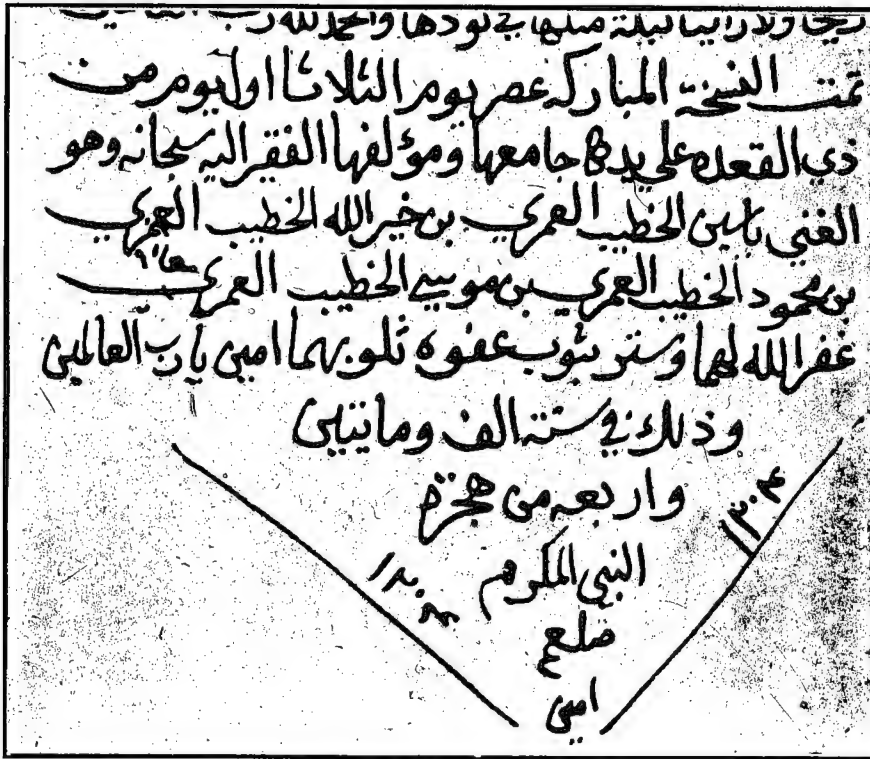 ريحا ولا راينا ليلة مثلها في نودها والحمد لله رب العالمين
تمت النسخة المباركه عصر يوم الثلاثا اول يوم من
ذي القعده علي يد جامعها ومؤلفها الفقير اليه سبحانه وهو
الغني ياسين الخطيب العمري بن خير الله الخطيب العمري
بن محمود الخطيب العمري بن موسي الخطيب العمري
غفر الله لهما وستر بثوب عفوه ذنوبهما امين يا رب العالمين
وذلك في سنة الف وماتيين
واربعه من هجرة
النبي المكرم
صلعم
امين
١٢٠٤
١٢٠٤